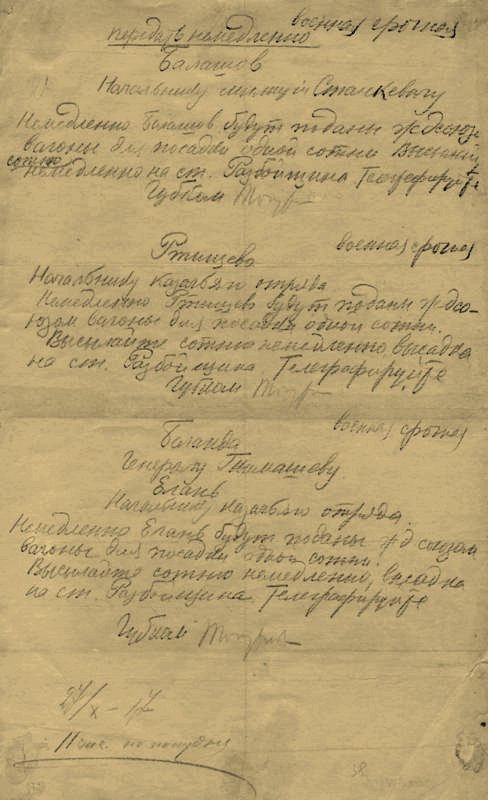 военная срочная
передать немедленно
Балашов
Начальнику милиции Сталкевичу
Немедленно Балашов будут поданы ж д союз
вагоны для посадки одной сотни Высылайте
сотню немедленно на ст. Разбойщина Телеграфируйте
Губком
военная срочная
Ртищево
Начальнику казачьяго отряда
Немедленно Ртищев будут поданы ж дсо-
юзом вагоны для посадки одной сотни.
Высылайте сотню немедленно, высадка
на ст. Разбойщина Телеграфируйте
Губком
военная срочная
Баланда
Генералу Тимашеву
Елань
Начальнику казачьяго отряда
Немедленно Елань будут поданы ж д союзом
вагоны для посадки одной сотни.
Высылайте сотню немедленно, высадка
на ст. Разбойщина Телеграфируйте
Губком
27/X - 17
11 час. по полудни
38